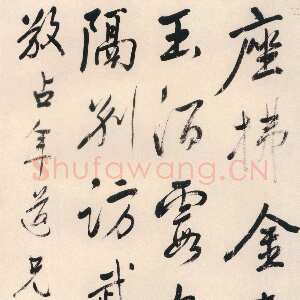 座拂金
玉酒霞
隔别訪武
占年道兄
Shufawang.CN